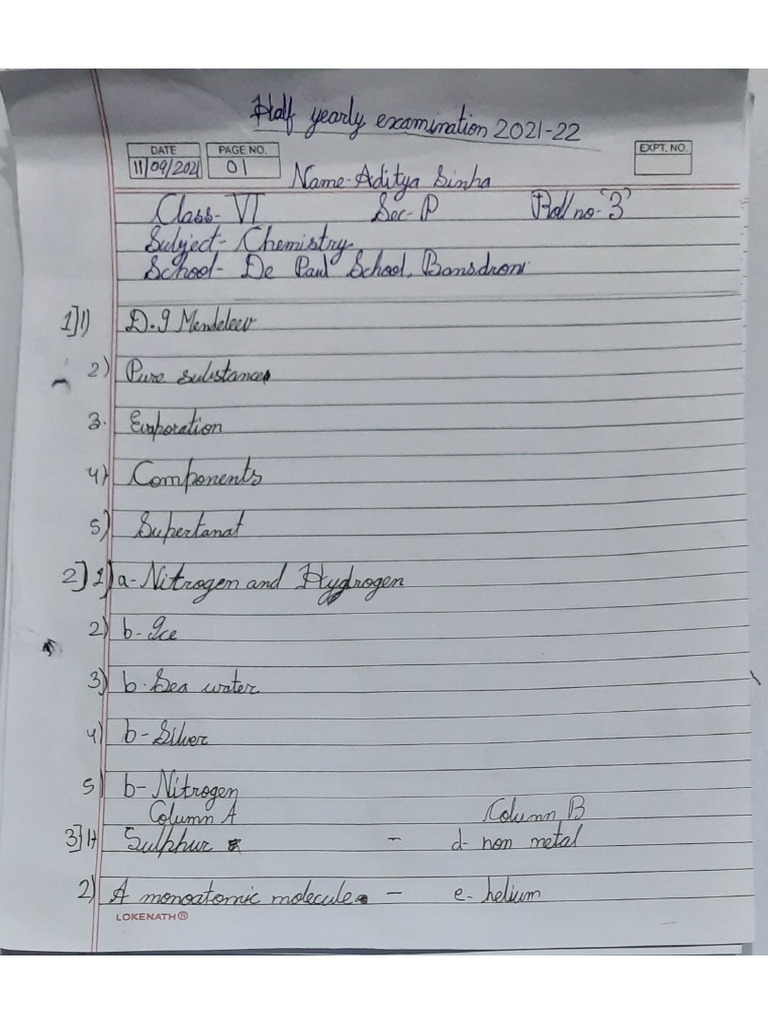 Half yearly examination 2021-22
DATE PAGE NO. EXPT. NO.
11/09/2021 01
Name-Aditya Sinha
Class-VI Sec-P Roll no-"3"
Subject- Chemistry
School- De Paul School, Bansdroni
1] 1) D.I Mendeleev
2) Pure substances
3. Evaporation
4) Components
5) Supertanat
2] 1) a- Nitrogen and Hydrogen
2) b- Ice
3) b- Sea water
4) b- Silver
5) b- Nitrogen
Column A Column B
3] 1) Sulphur - d- non metal
2) A monoatomic molecule - e- helium
LOKENATH®